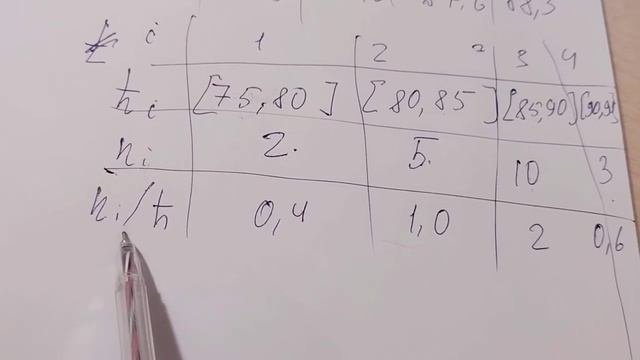 i 1 2 3 4
ħi [75,80] [80,85] [85,90]
ni 2. 5. 10 3
ni/ħ 0,4 1,0 2 0,6